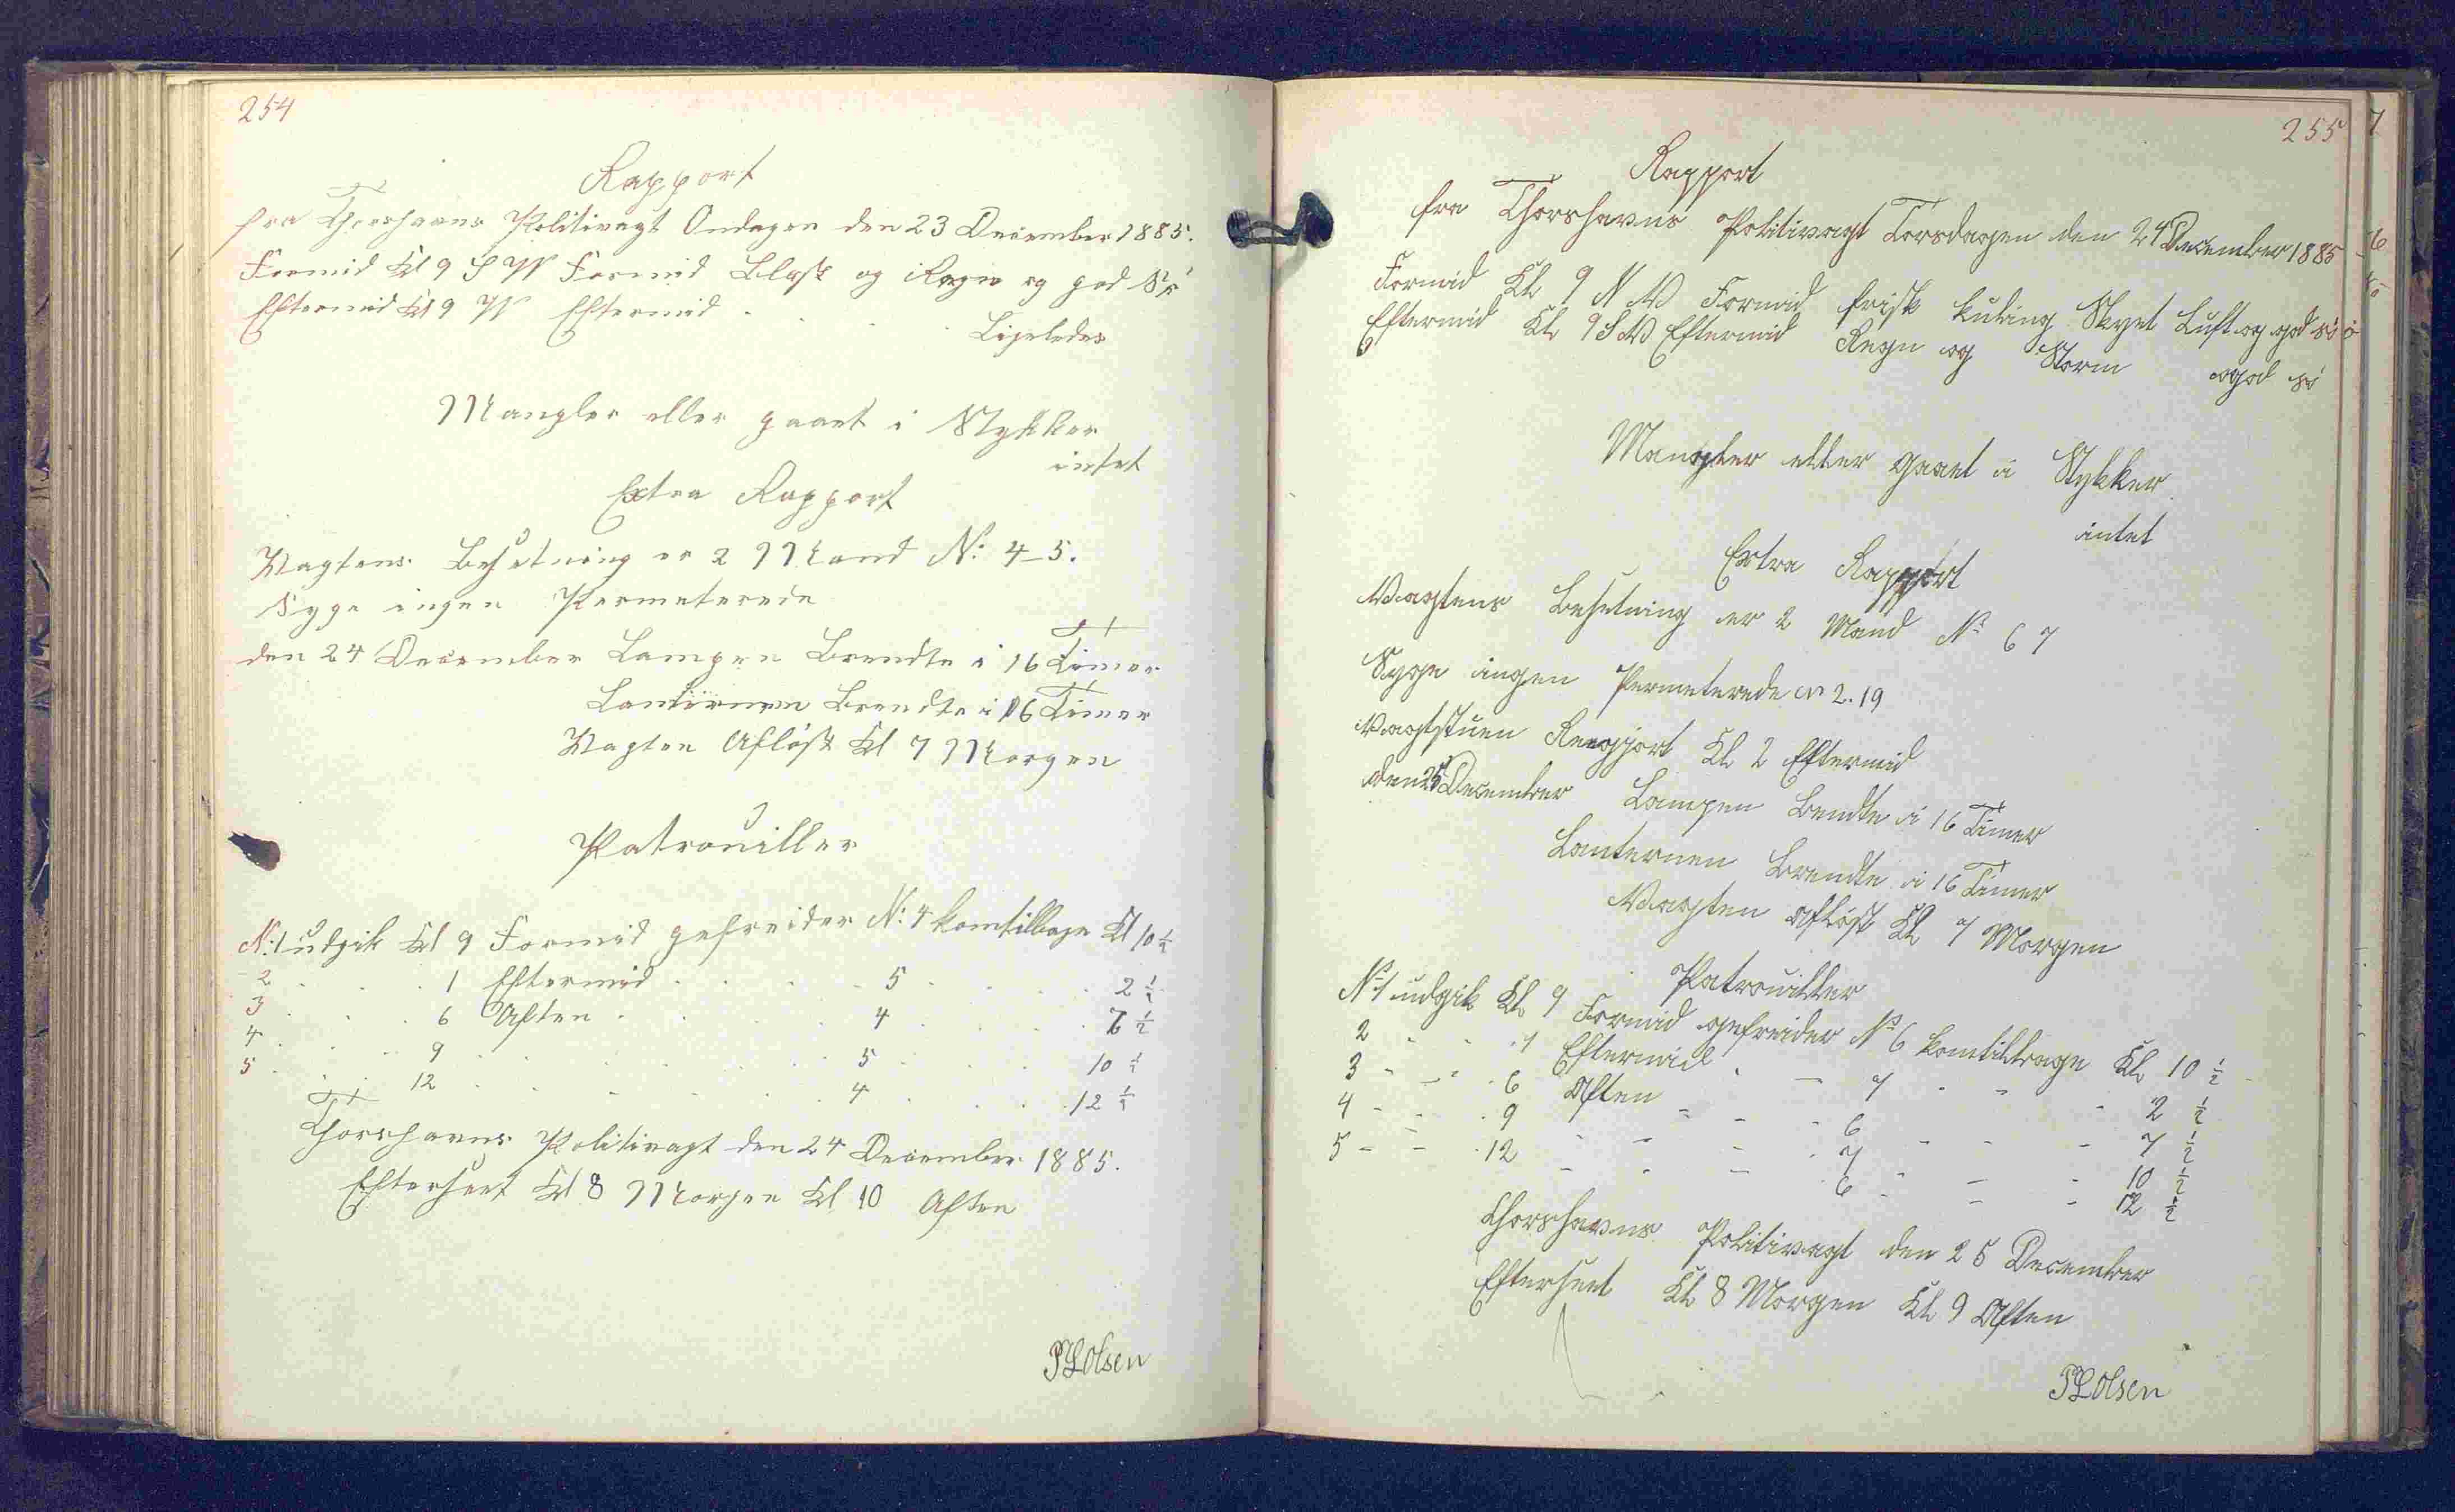 254
Rapport
fra Thorshavns Politivagt Ondagen den 23 December 1885.
Formid Kl 9 S W Formid Blæst og Regn og god Sø
Eftermid Kl 9 W Eftermid . . . . Ligeledes
Mangler eller gaaet i Stykker
intet
Extra Rapport
Vagtens Besetning er 2 Mand N: 4-5.
Syge ingen Permeterede
den 24 December Lampen Brendte i 16 Timer
Lanternen Brendte i 16 Timer
Vagten Afløst Kl 7 Morgen
Patrouiller
N: 1 udgik Kl 9 Formid gefreider N: 4 komtilbage Kl 10 ½
2 . . . 1 Eftermid . . . . 5 . . . . 2 ½
3 . . . 6 Aften . . . . 4 . . . . 7 ½
4 . . . 9 . . . . . 5 . . . . 10 ½
5 . . . 12 . . . . . 4 . . . . 12 ½
Thorshavns Politivagt den 24 December 1885.
Efterseet Kl 8 Morgen Kl 10 Aften
Olsen
255
Rapport
fra Thorshavns Politivagt Torsdagen den 24 December 1885
Formid Kl 9 N W Formid frisk kuling Skyet Luft og god sø
Eftermid Kl 9 S W Eftermid Regn og Storm og god sø
Mangler eller gaaet i Stykker
intet
Extra Rapport
Vagtens Besetning er 2 Mand No 6 7
Syge ingen Permeterede er 2. 19
Vagtstuen Rengjort Kl 2 Eftermid
den 25 December Lampen Bendte i 16 Timer
Lanternen Brendte i 16 Timer
Vagten Afløst Kl 7 Morgen
Patrouiller
No 1 udgik Kl 9 Formid gefreider No 6 komtilbage Kl 10 ½
2 - - 1 Eftermid - - 7 - - - 2 ½
3 - - 6 Aften - - 6 - - - 7 ½
4 - - 9 - - - 7 - - - 10 ½
5 - - 12 - - - 6 - - - 12 ½
Thorshavns Politivagt den 25 December
Efterseet Kl 8 Morgen Kl 9 Aften
Olsen